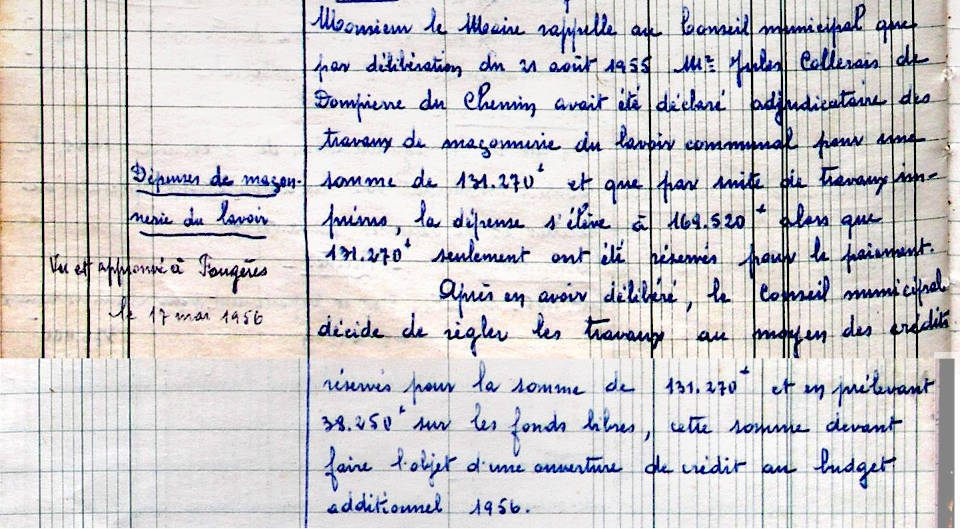 Monsieur le Maire rappelle au Conseil municipal que
par délibération du 21 août 1955 Mr Jules Collerais de
Dompierre du Chemin avait été déclaré adjudicataire des
travaux de maçonnerie du lavoir communal pour une
somme de 131.270 f et que par suite de travaux im-
prévus, la dépense s'élève à 169.520 f alors que
131.270 f seulement ont été réservés pour le paiement.
Après en avoir délibéré, le Conseil municipal
décide de régler les travaux au moyen des crédits
réservés pour la somme de 131.270 f et en prélevant
38.250 f sur les fonds libres, cette somme devant
faire l'objet d'une ouverture de crédit au budget
additionnel 1956.
Dépenses de maçon-
nerie du lavoir
Vu et approuvé à Fougères
le 17 mai 1956